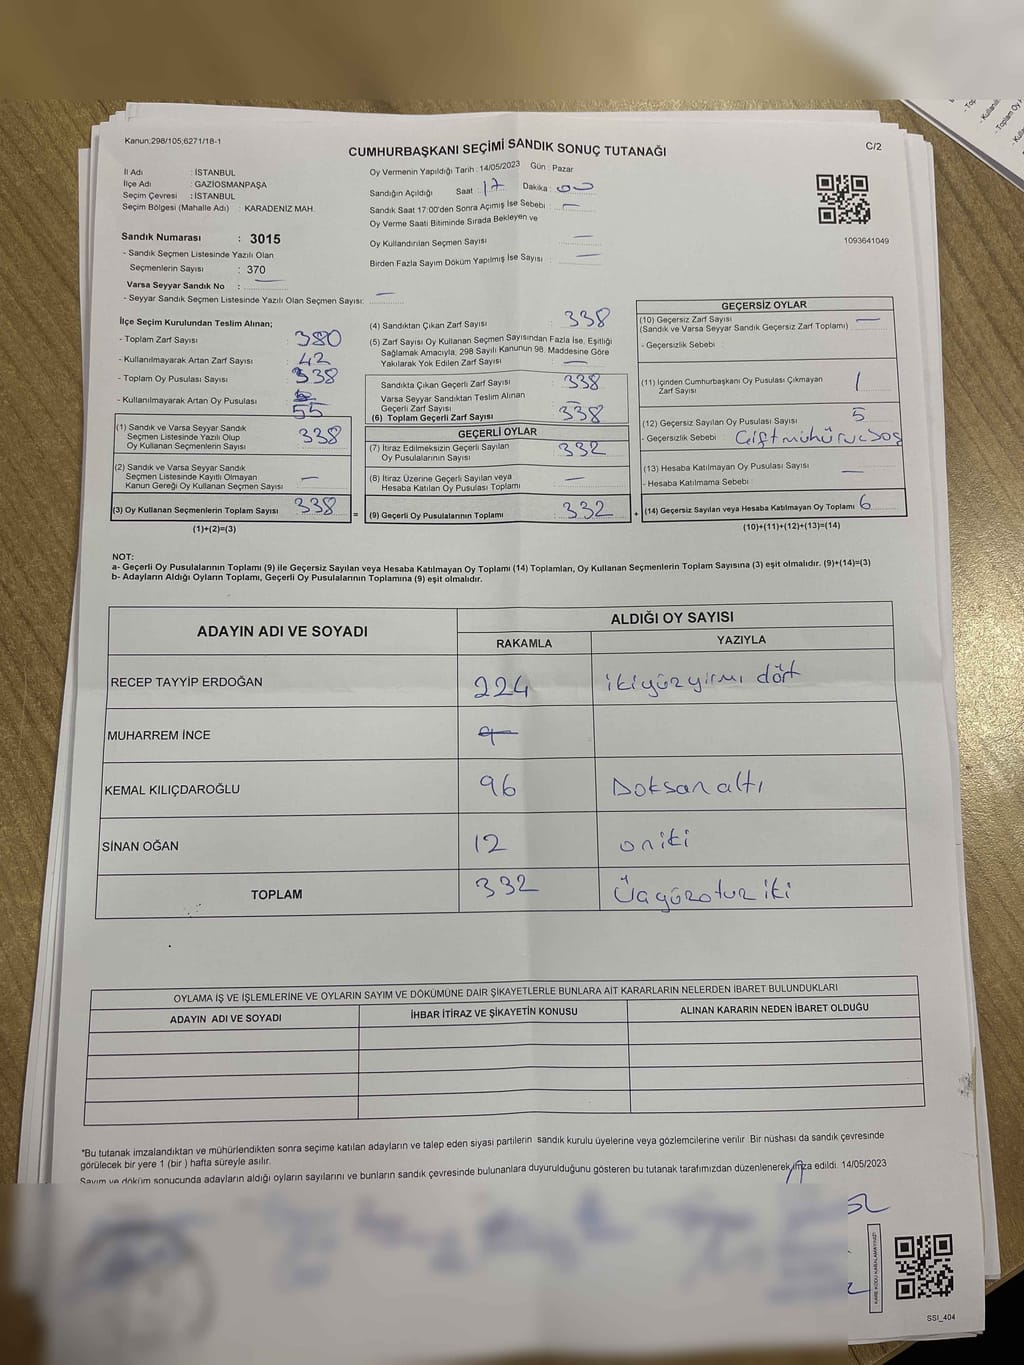 Kanun;298/105;6271/18-1
CUMHURBAŞKANI SEÇİMİ SANDIK SONUÇ TUTANAĞI
C/2
İl Adı : İSTANBUL
İlçe Adı : GAZİOSMANPAŞA
Seçim Çevresi : İSTANBUL
Seçim Bölgesi (Mahalle Adı) : KARADENİZ MAH.
Oy Vermenin Yapıldığı Tarih : 14/05/2023 Gün : Pazar
Sandığın Açıldığı Saat : 17 Dakika : 00
Sandık Saat 17:00'den Sonra Açımış İse Sebebi : —
Oy Verme Saati Bitiminde Sırada Bekleyen ve
Oy Kullandırılan Seçmen Sayısı —
Birden Fazla Sayım Döküm Yapılmış İse Sayısı : —
1093641049
Sandık Numarası : 3015
- Sandık Seçmen Listesinde Yazılı Olan
Seçmenlerin Sayısı : 370
Varsa Seyyar Sandık No : —
- Seyyar Sandık Seçmen Listesinde Yazılı Olan Seçmen Sayısı: —
İlçe Seçim Kurulundan Teslim Alınan;
- Toplam Zarf Sayısı : 380
- Kullanılmayarak Artan Zarf Sayısı : 42
- Toplam Oy Pusulası Sayısı : 338
- Kullanılmayarak Artan Oy Pusulası : 55
(1) Sandık ve Varsa Seyyar Sandık
Seçmen Listesinde Yazılı Olup
Oy Kullanan Seçmenlerin Sayısı 338
(2) Sandık ve Varsa Seyyar Sandık
Seçmen Listesinde Kayıtlı Olmayan
Kanun Gereği Oy Kullanan Seçmen Sayısı —
(3) Oy Kullanan Seçmenlerin Toplam Sayısı 338
(1)+(2)=(3)
(4) Sandıktan Çıkan Zarf Sayısı 338
(5) Zarf Sayısı Oy Kullanan Seçmen Sayısından Fazla İse, Eşitliği
Sağlamak Amacıyla; 298 Sayılı Kanunun 98. Maddesine Göre
Yakılarak Yok Edilen Zarf Sayısı —
Sandıkta Çıkan Geçerli Zarf Sayısı 338
Varsa Seyyar Sandıktan Teslim Alınan
Geçerli Zarf Sayısı —
(6) Toplam Geçerli Zarf Sayısı 338
GEÇERLİ OYLAR
(7) İtiraz Edilmeksizin Geçerli Sayılan
Oy Pusulalarının Sayısı 332
(8) İtiraz Üzerine Geçerli Sayılan veya
Hesaba Katılan Oy Pusulası Toplamı —
= (9) Geçerli Oy Pusulalarının Toplamı 332 +
GEÇERSİZ OYLAR
(10) Geçersiz Zarf Sayısı
(Sandık ve Varsa Seyyar Sandık Geçersiz Zarf Toplamı) —
- Geçersizlik Sebebi :
(11) İçinden Cumhurbaşkanı Oy Pusulası Çıkmayan
Zarf Sayısı 1
(12) Geçersiz Sayılan Oy Pusulası Sayısı 5
- Geçersizlik Sebebi :
(13) Hesaba Katılmayan Oy Pusulası Sayısı —
- Hesaba Katılmama Sebebi :
(14) Geçersiz Sayılan veya Hesaba Katılmayan Oy Toplamı 6
(10)+(11)+(12)+(13)=(14)
NOT:
a- Geçerli Oy Pusulalarının Toplamı (9) ile Geçersiz Sayılan veya Hesaba Katılmayan Oy Toplamı (14) Toplamları, Oy Kullanan Seçmenlerin Toplam Sayısına (3) eşit olmalıdır. (9)+(14)=(3)
b- Adayların Aldığı Oyların Toplamı, Geçerli Oy Pusulalarının Toplamına (9) eşit olmalıdır.
ADAYIN ADI VE SOYADI
ALDIĞI OY SAYISI
RAKAMLA YAZIYLA
RECEP TAYYİP ERDOĞAN 224 ikiyüzyirmi dört
MUHARREM İNCE
KEMAL KILIÇDAROĞLU 96 Doksan altı
SİNAN OĞAN 12 oniki
TOPLAM 332 Üçyüzotuz iki
OYLAMA İŞ VE İŞLEMLERİNE VE OYLARIN SAYIM VE DÖKÜMÜNE DAİR ŞİKAYETLERLE BUNLARA AİT KARARLARIN NELERDEN İBARET BULUNDUKLARI
ADAYIN ADI VE SOYADI İHBAR İTİRAZ VE ŞİKAYETİN KONUSU ALINAN KARARIN NEDEN İBARET OLDUĞU
*Bu tutanak imzalandıktan ve mühürlendikten sonra seçime katılan adayların ve talep eden siyasi partilerin sandık kurulu üyelerine veya gözlemcilerine verilir. Bir nüshası da sandık çevresinde
görülecek bir yere 1 (bir) hafta süreyle asılır.
Sayım ve döküm sonucunda adayların aldığı oyların sayılarını ve bunların sandık çevresinde bulunanlara duyurulduğunu gösteren bu tutanak tarafımızdan düzenlenerek imza edildi. 14/05/2023
KARE KODU KARALAMAYINIZ!
SSI_404